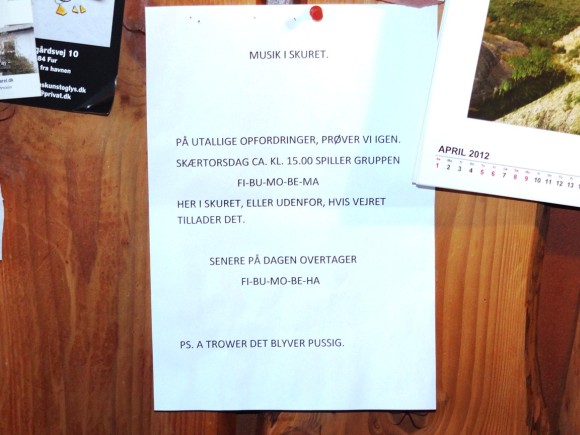 gårdsvej 10
84 Fur
fra havnen
rel.dk
skunstoglys.dk
@privat.dk
MUSIK I SKURET.
PÅ UTALLIGE OPFORDRINGER, PRØVER VI IGEN.
SKÆRTORSDAG CA. KL. 15.00 SPILLER GRUPPEN
FI-BU-MO-BE-MA
HER I SKURET, ELLER UDENFOR, HVIS VEJRET
TILLADER DET.
SENERE PÅ DAGEN OVERTAGER
FI-BU-MO-BE-HA
PS. A TROWER DET BLYVER PUSSIG.
APRIL 2012
1 2 3 4 5 6 7 8 9 10 11 12 13